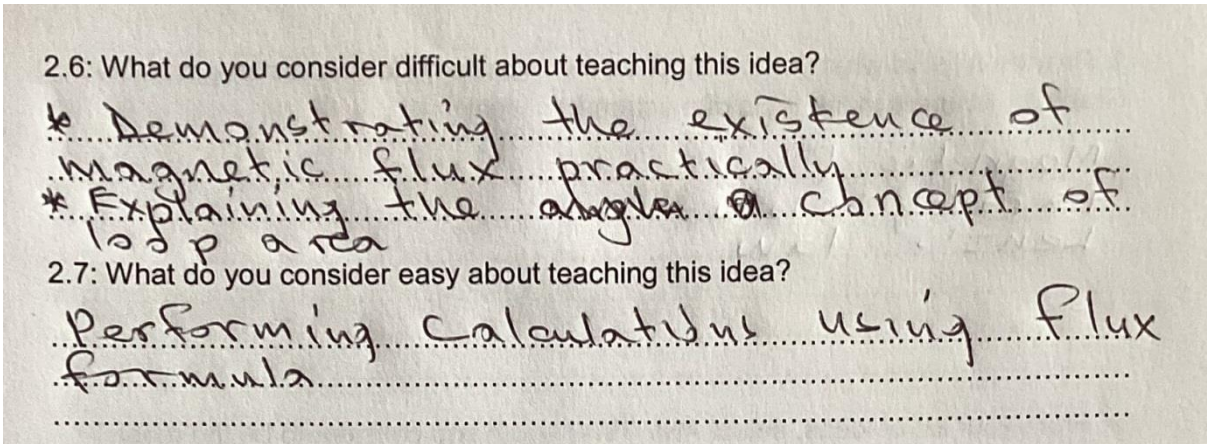 2.6: What do you consider difficult about teaching this idea?
* Demonstrating the existence of
magnetic flux practically
* Explaining the concept of
loop area
2.7: What do you consider easy about teaching this idea?
Performing calculations using flux
formula